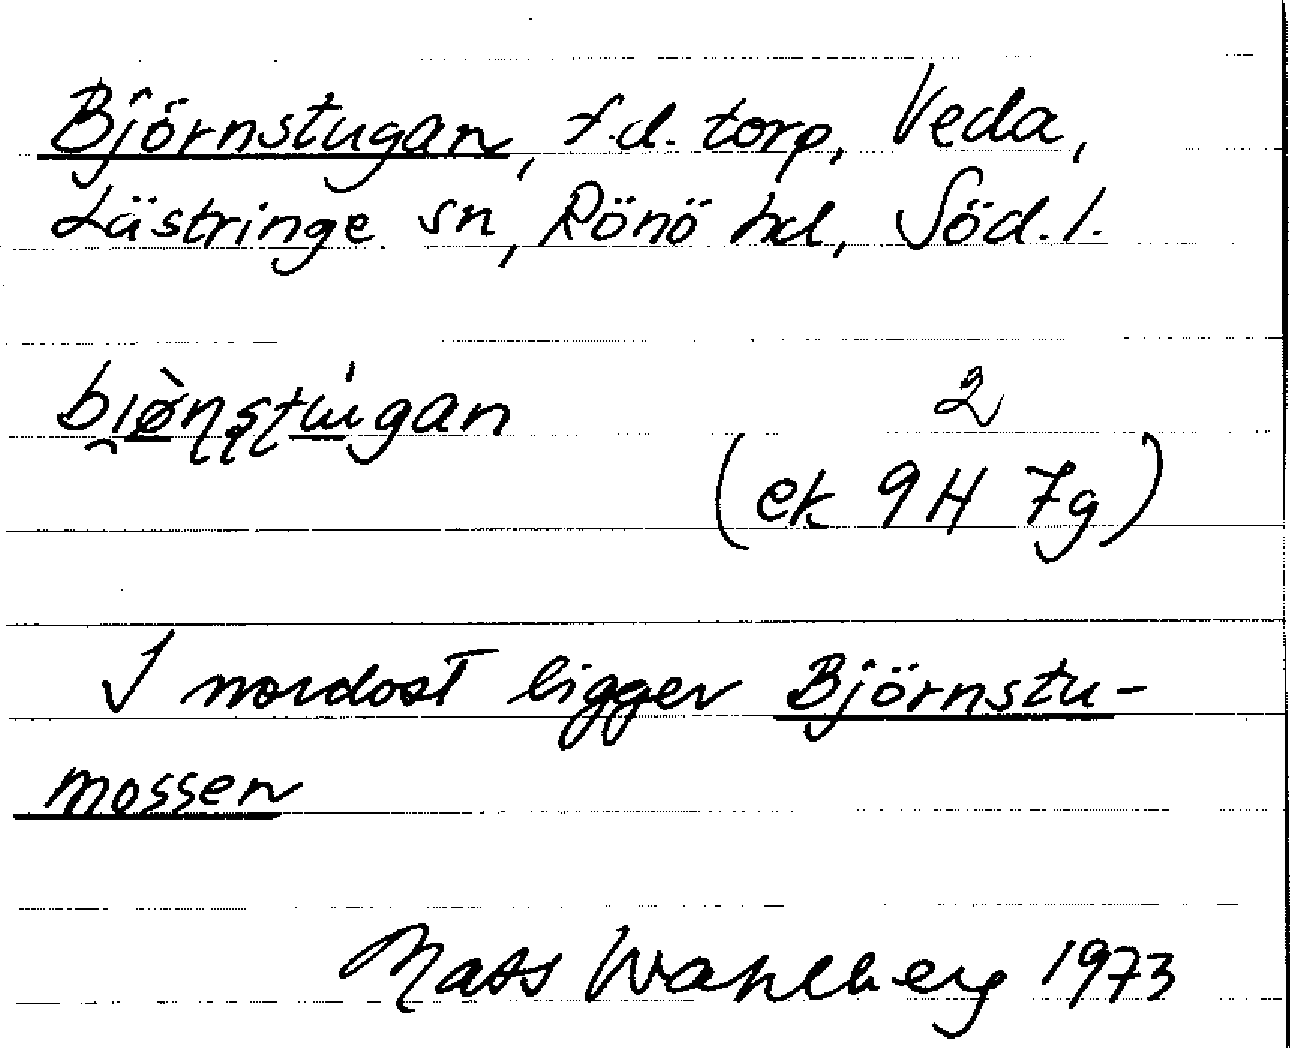 Björnstugan, f.d. torp, Veda,
Lästringe sn, Rönö hd, Söd.l.
bi̯ø̀ɳʂʈɯ́gan 2
(ek 9H 7g)
I nordost ligger Björnstu-
mossen
Mats Wahlberg 1973